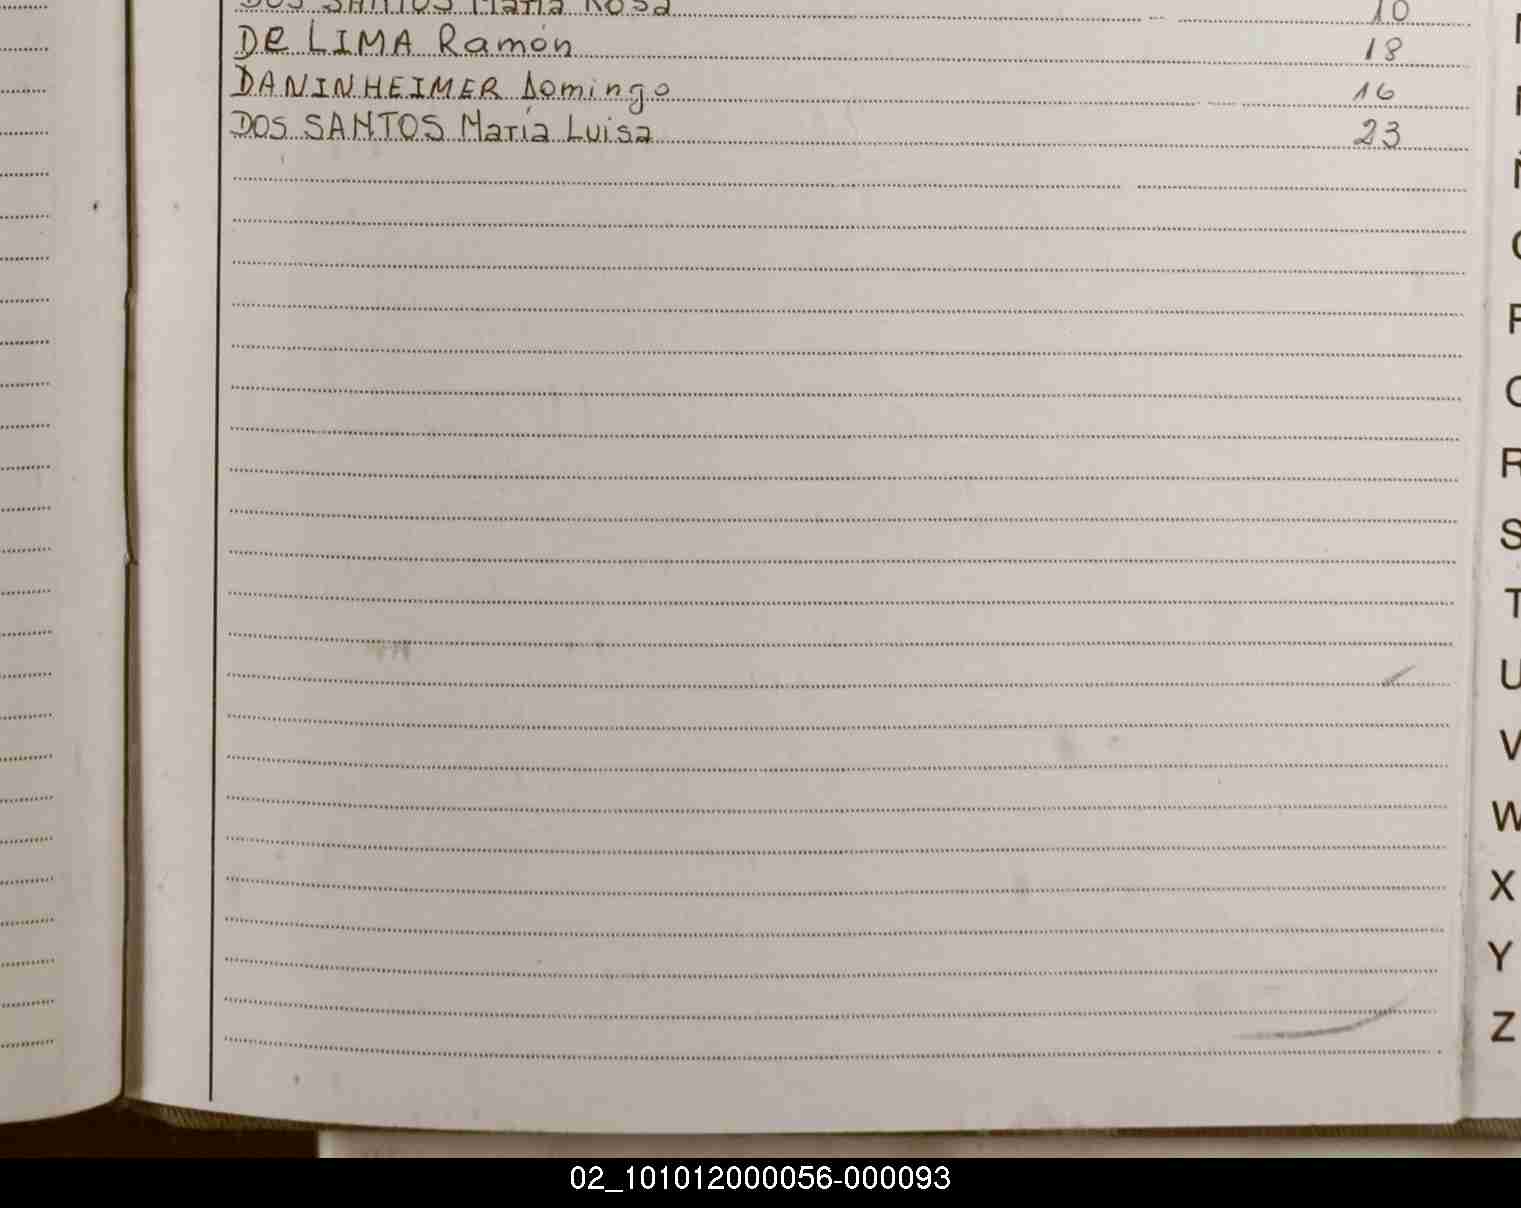 DOS SANTOS María Rosa 10
De LIMA Ramón 18
DANINHEIMER Domingo 16
DOS SANTOS María Luisa 23
R
S
T
U
V
W
X
Y
Z
02_101012000056-000093